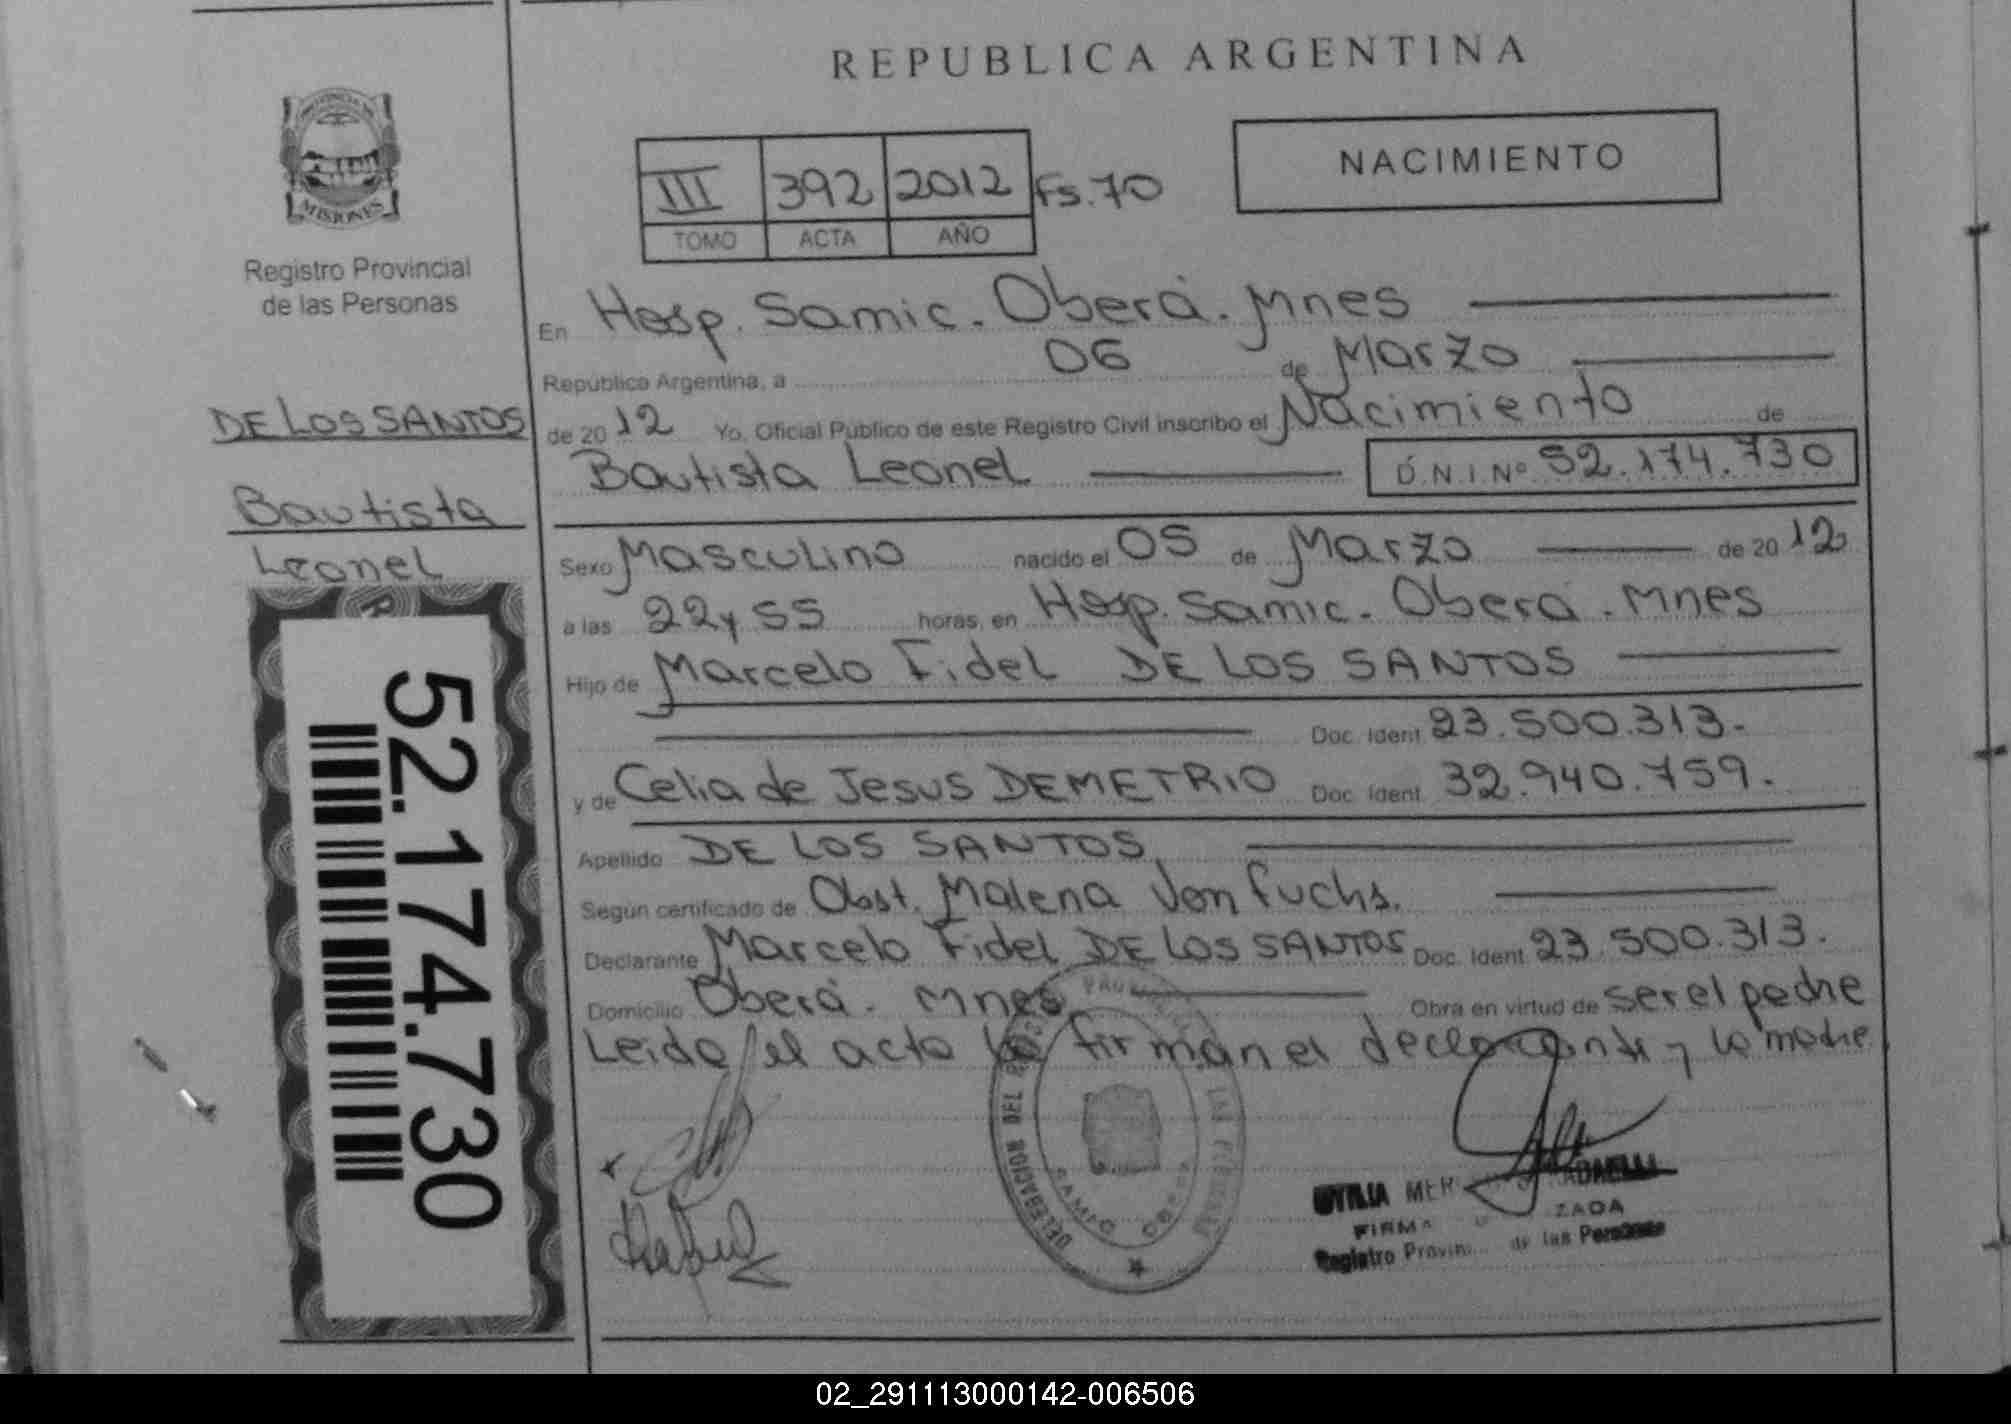 REPUBLICA ARGENTINA
PROVINCIA DE
MISIONES
Registro Provincial
de las Personas
NACIMIENTO
III 392 2012 Fs. 70
TOMO ACTA AÑO
DE LOS SANTOS
Bautista
Leonel
52.174.730
En Hosp. Samic. Oberá. Mnes
República Argentina, a 06 de Marzo
de 2012 Yo, Oficial Público de este Registro Civil inscribo el Nacimiento de
Bautista Leonel D.N.I. Nº 52.174.730
Sexo Masculino nacido el 05 de Marzo de 2012
a las 22 y 55 horas, en Hosp. Samic. Oberá. Mnes
Hijo de Marcelo Fidel DE LOS SANTOS
Doc. Ident. 23.500.313.-
y de Celia de Jesus DEMETRIO Doc. Ident. 32.940.759.
Apellido DE LOS SANTOS
Según certificado de Obst. Malena Von Fuchs.
Declarante Marcelo Fidel DE LOS SANTOS Doc. Ident. 23.500.313.
Domicilio Oberá. Mnes. Obra en virtud de ser el padre
Leida el acta la firman el declarante y la madre
DELEGACION DEL
LAS
FIRMA ZADA
Registro Provin de las Personas
02_291113000142-006506